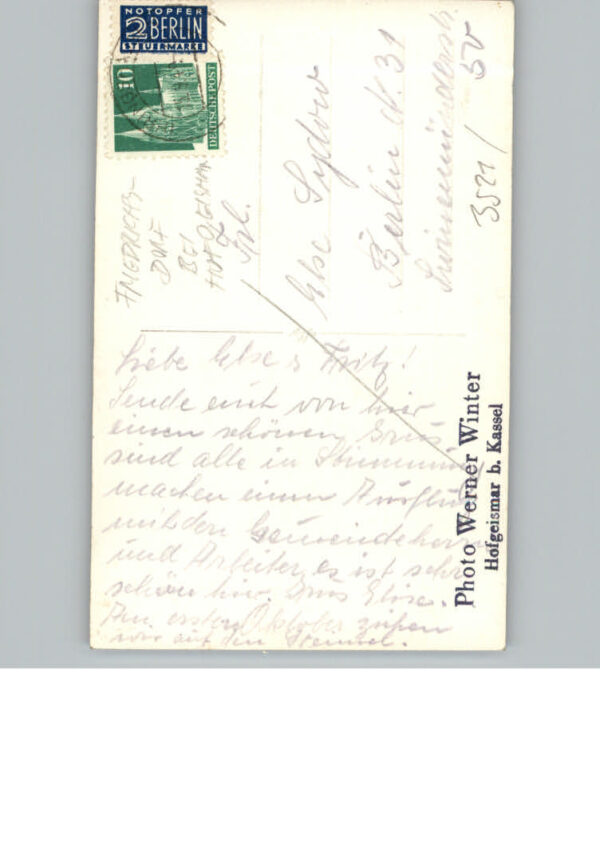 NOTOPFER
2 BERLIN
STEUERMARKE
10
DEUTSCHE POST
FRIEDRICHS-
DORF
BEI
HOFGEISMAR
Frl.
Else Sydow
Berlin N. 31
Swinemünderstr.
50
3521/
Liebe Else & Fritz!
Sende euch von hier
einen schönen Grus
sind alle in Stimmung
machen einen Ausflug
mit den Gemeindeherrn
und Arbeiter, es ist sehr
schön hier. Grus
Am ersten Oktober
wir auf den
Photo Werner Winter
Hofgeismar b. Kassel